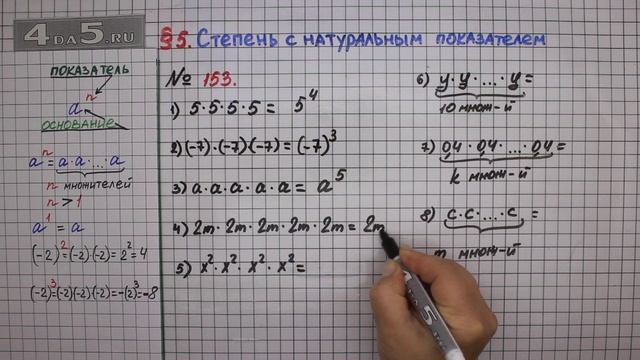 4DA5.RU
§5. Степень с натуральным показателем
показатель
aⁿ
основание
aⁿ = a·a·...·a
n множителей
n > 1
a¹ = a
(-2)² = (-2)·(-2) = 2² = 4
(-2)³ = (-2)(-2)(-2) = -(2)³ = -8
№ 153.
1) 5·5·5·5 = 5⁴
2) (-7)·(-7)·(-7) = (-7)³
3) a·a·a·a·a = a⁵
4) 2m·2m·2m·2m·2m = 2m
5) x²·x²·x²·x² =
6) y·y·...·y =
10 множ-й
7) 0,4·0,4·...·0,4 =
k множ-й
8) c·c·...·c =
m множ-й